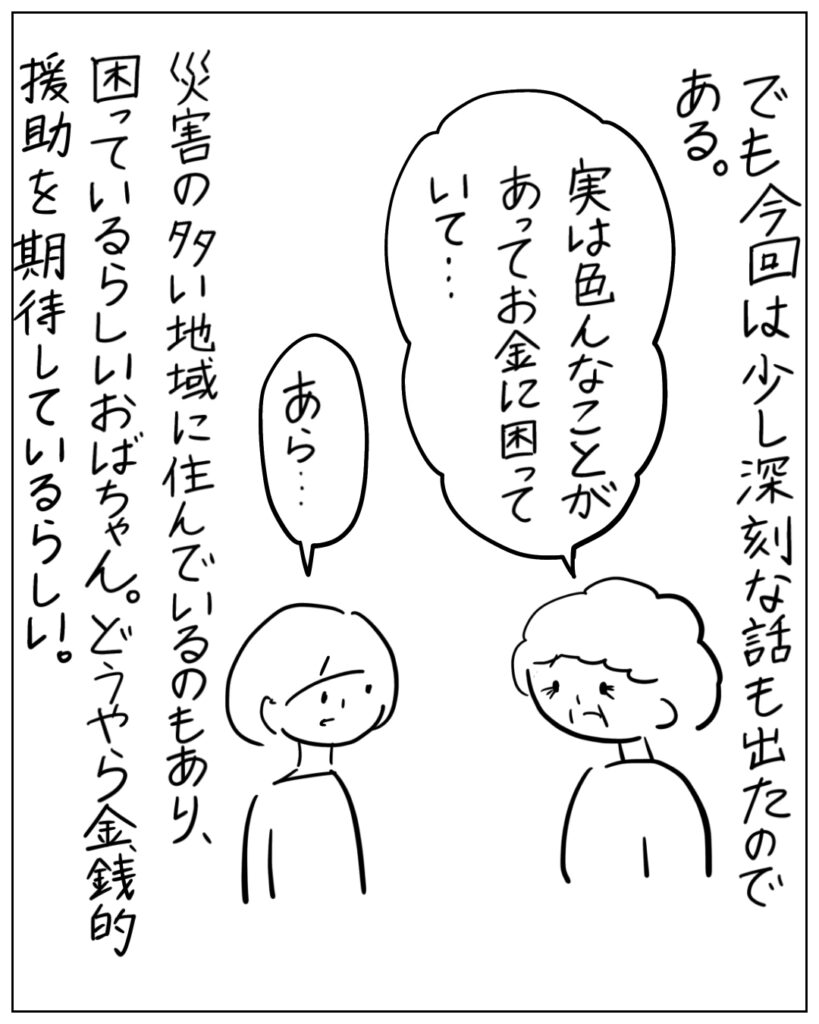 でも今回は少し深刻な話も出たので
ある。
実は色んなことが
あってお金に困って
いて…
あら…
災害の多い地域に住んでいるのもあり、
困っているらしいおばちゃん。どうやら金銭的
援助を期待しているらしい。